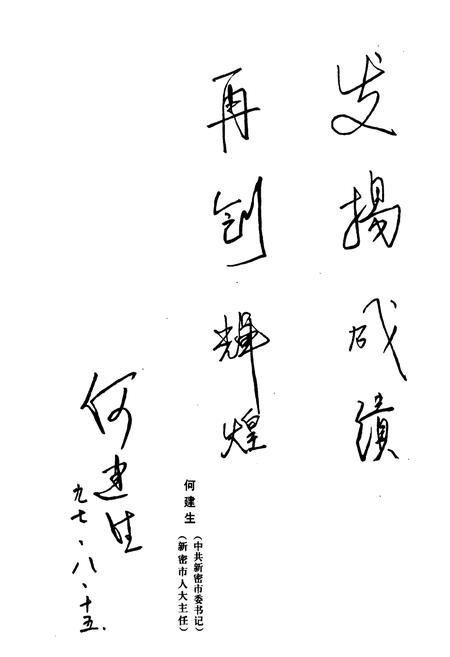 发揚成績
再创輝煌
何建生
九七、八、十五.
何建生
（中共新密市委书记）
（新密市人大主任）